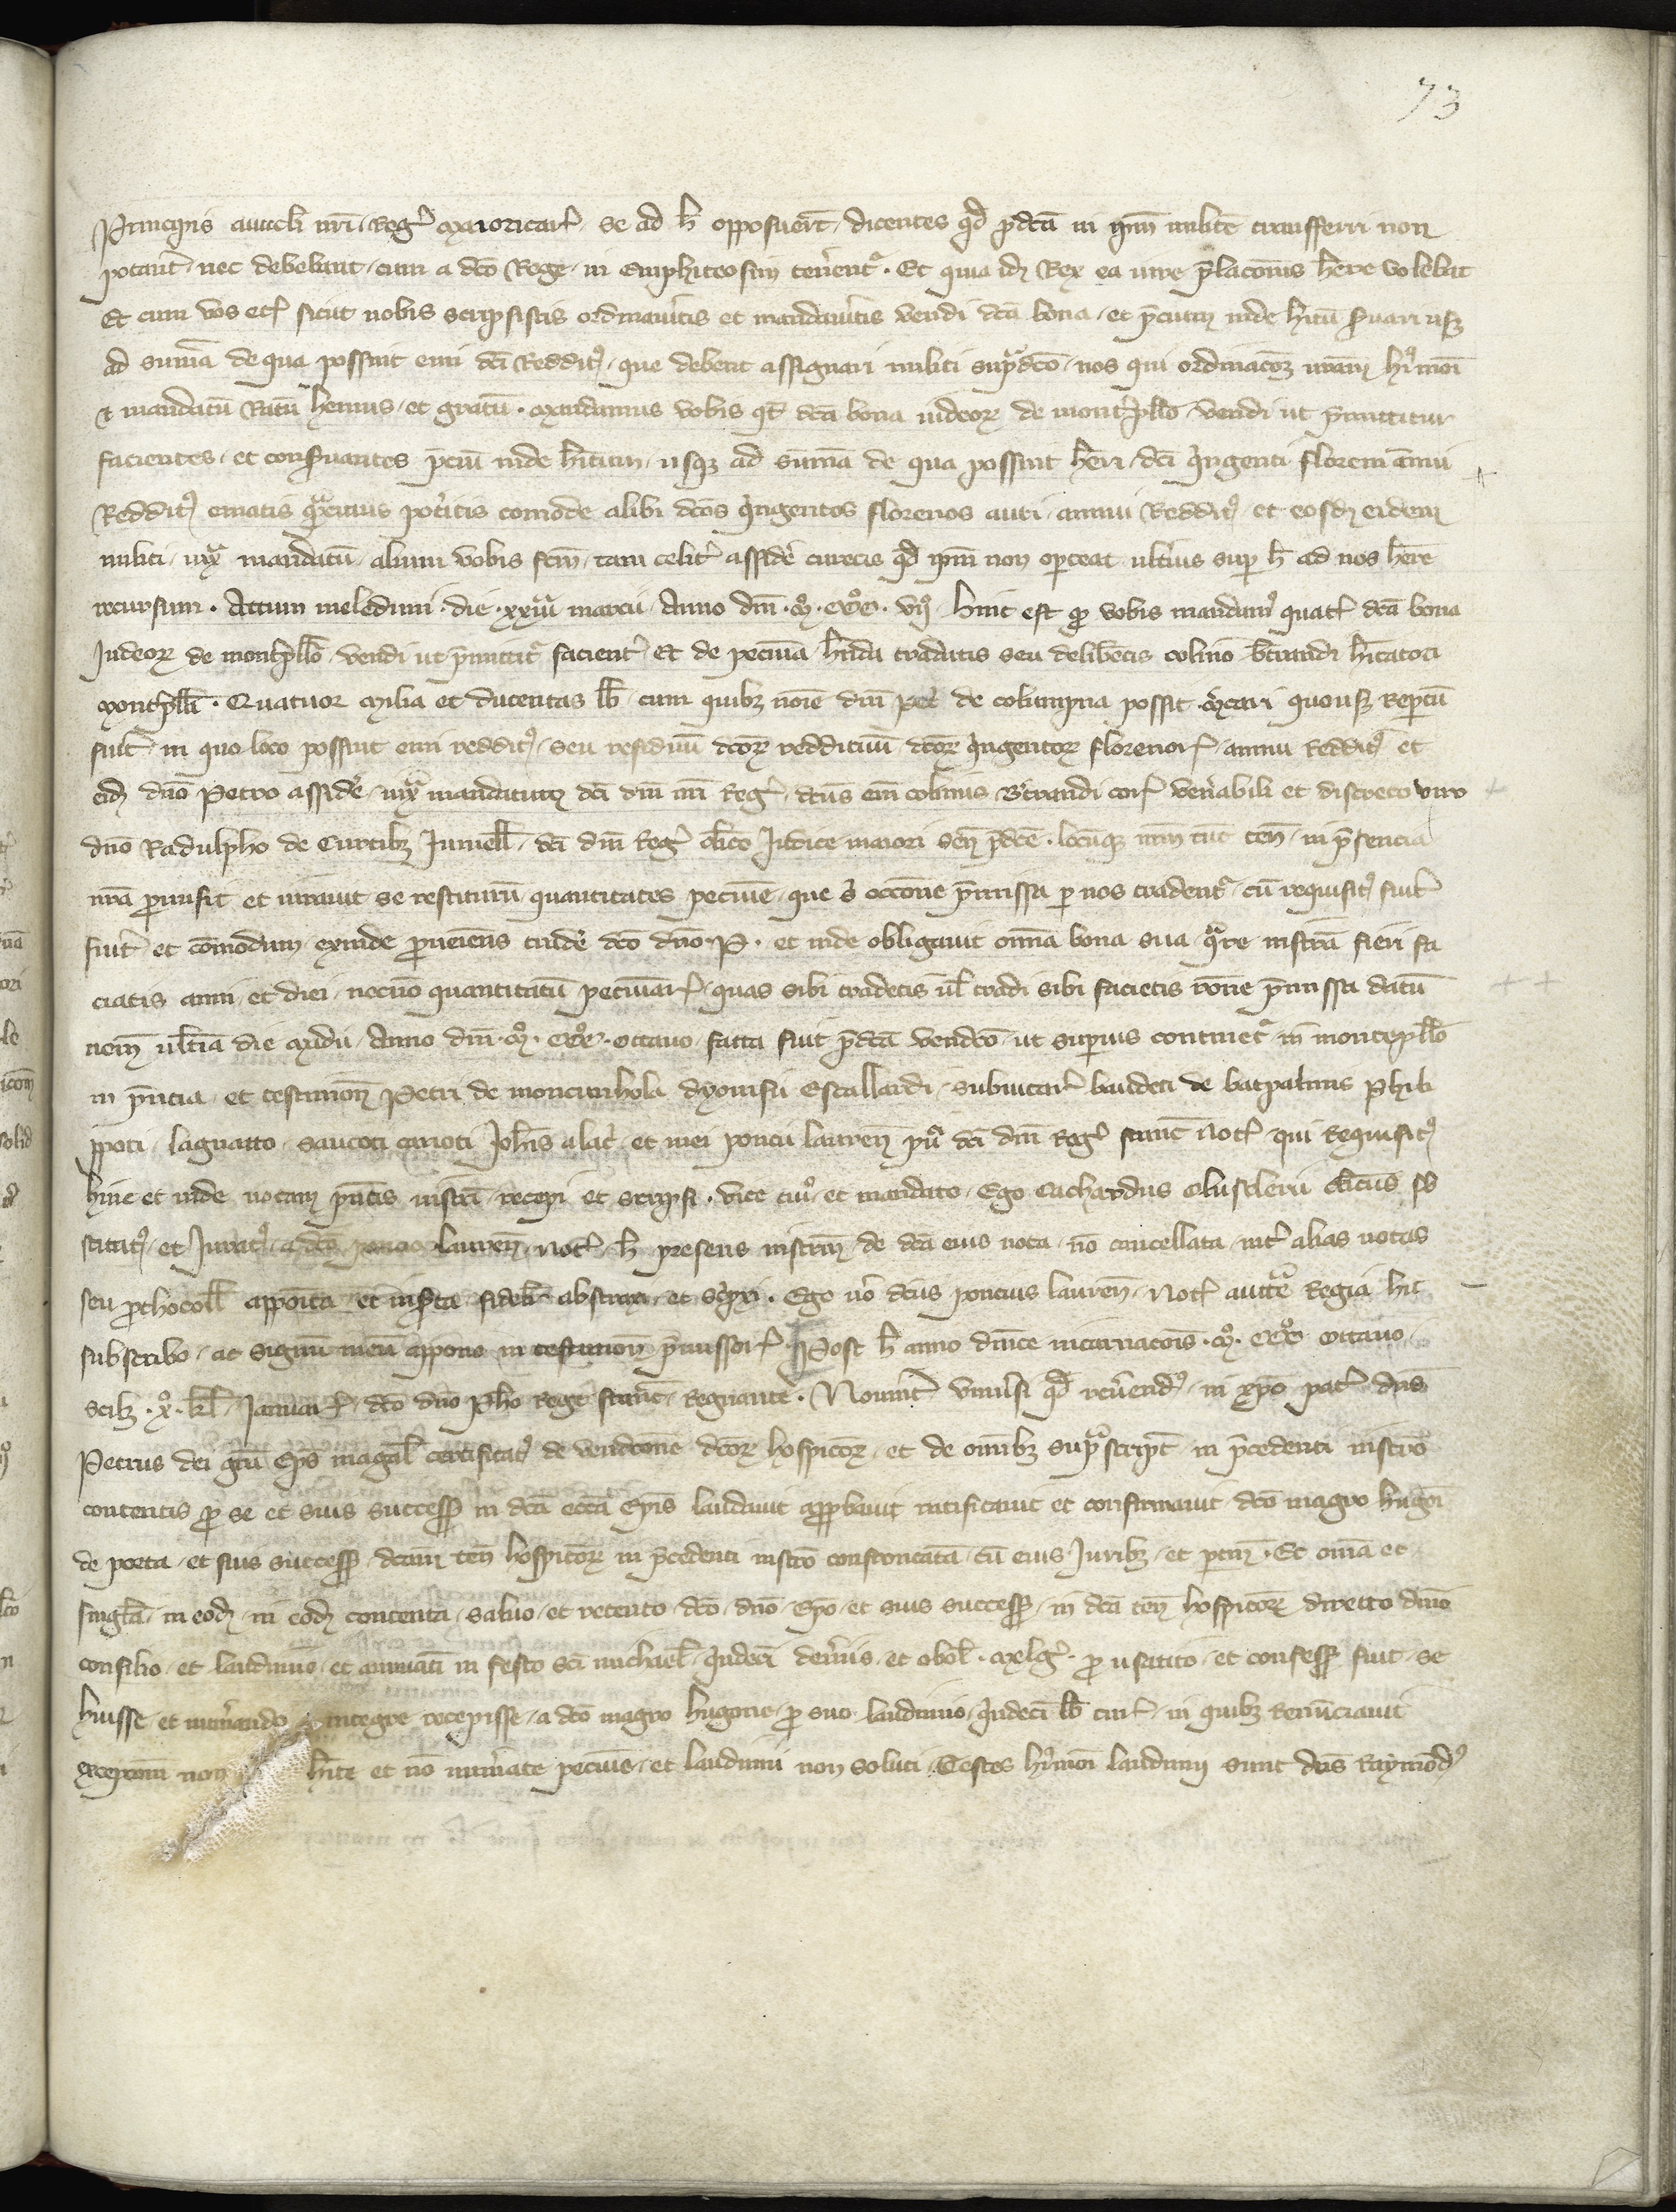 73
Principis avuncli nri Reg Maioricar se ad h opposuert dicentes qd pdcta in ipm militē transferri non
potant nec debebant cum a dco Rege in emphiteosim tenent. Et quia idz Rex ea iure placonis hēre volebat
Et cum vos etc sicut nobis scripsistis ordinavistis et mandavistis vendi dcā bona et pcium inde hītū servari usqz
ad sumā de qua possint emi dci Reddit que debent assignari militi supdco nos qui ordinacoz vram hmoi
et mandatū Ratū hemus et gratū. Mandamus vobis qd dcā bona iudeorz de montpllo vendi ut pmittitur
facientes et conservantes pciū inde hītum usqz ad sūmā de qua possint hēri dci qingenti floreni annui
Reddit ematis poteitis comode alibi dcos qingentos florenos auri annui Reddit et eosdz eidem
militi iux mandatū alium vobis fcm tam celit assidē curetis qd ipm non opteat ultius sup h ad nos hēre
recursum. Actum meleduni die xxiiii marcii Anno dni M CCC VII. hinc est qd vobis mandam quat dcā bona
Judeorz de montpllo vendi ut pmittit facient Et de pecunia hnda tradatis seu delibetis colino btrandi hītatori
Montpll. Quatuor milia et ducentas lb cum quibz noīe dni Pet de columpna possit mcari quousqz Reptū
fuit in quo loco possint emi reddit seu residuū dcorz reddituū dcorz qingentorz florenor annui Reddit et
eidz dno Petro assidē iux mandatum dci dni nri Reg. dcus em colinus Btrandi cor venabili et discreto viro
dno Radulpho de Curtibz Jumell dci dni Reg clico Judice maiori sen pdce locūqz nrm tuc ten in psencia
nra pmisit et iuravit se restiturū quantitates pecunie que occone pmissa p nos tradent cū requisit fuit
fuit et comodum exinde pveiens dco dno P. et inde obligavit omia bona sua qre instrm fieri fa
ciatis anni et diei necno quantitatū pecuniar quas sibi tradetis ul tradi sibi facietis rone pmissa datū
nem ultia die Madii Anno dni M CCC octavo facta fuit pdcta vendco ut supius continet in montepllo
in pncia et testimon Petri de moncunhola dyonisii Escallardi subvicar baudeti de batpalmis phili
ppoti laguatto saucoti carioti Johis alacr et mei poncii lauren pu dci dni Reg scinc Not qui Requisit
hinc et inde notam pntis instri recepi et scripsi. vice cui et mandato Ego Eachardus Olusclerii clicus sb
stitut et Jurat a dco poncio lauren not h presens instrm de dcā eius nota no cancellata int alias notas
seu pthocoll appoita et inserta fidelr abstraxi et scripsi. Ego vo dcus poncius lauren Not auctē Regia hic
subscribo ac signū meū appono in testimon pmissor. Post h anno dnice incarnacois M CCC octavo
scilz x kl Januar dco dno Pho Rege franc Regnante. Noverit universi qd revend in xpo pat dns
Petrus dei gra Eps magal certificat de vendcone dcorz hospicorz et de omibz supscript in pcedenti instro
contentis p se et suis successo in dcā eccā Epis laudavit appbavit ratificavit et confirmavit dco magro hugoi
de porta et suis successo dcam ten hospicorz in pcedenti instro confrontatā cū eius Juribz et ptin. Et omia et
singla in eodz in eodz contenta salvo et retento dco dno Epo et suis successo in dcā ten hospicorz directo dnio
consilio et laudimio et annuati in festo sci michael qindeci denis et obol Melg p usatico et confesso fuit se
huisse et numando integre recepisse a dco magro hugone p suo laudimio qindeci lb tur in quibz Renunciavit
excepconi non hite et no numate pecunie et laudimii non soluti. Testes hmoi laudimii sunt dns Raymond